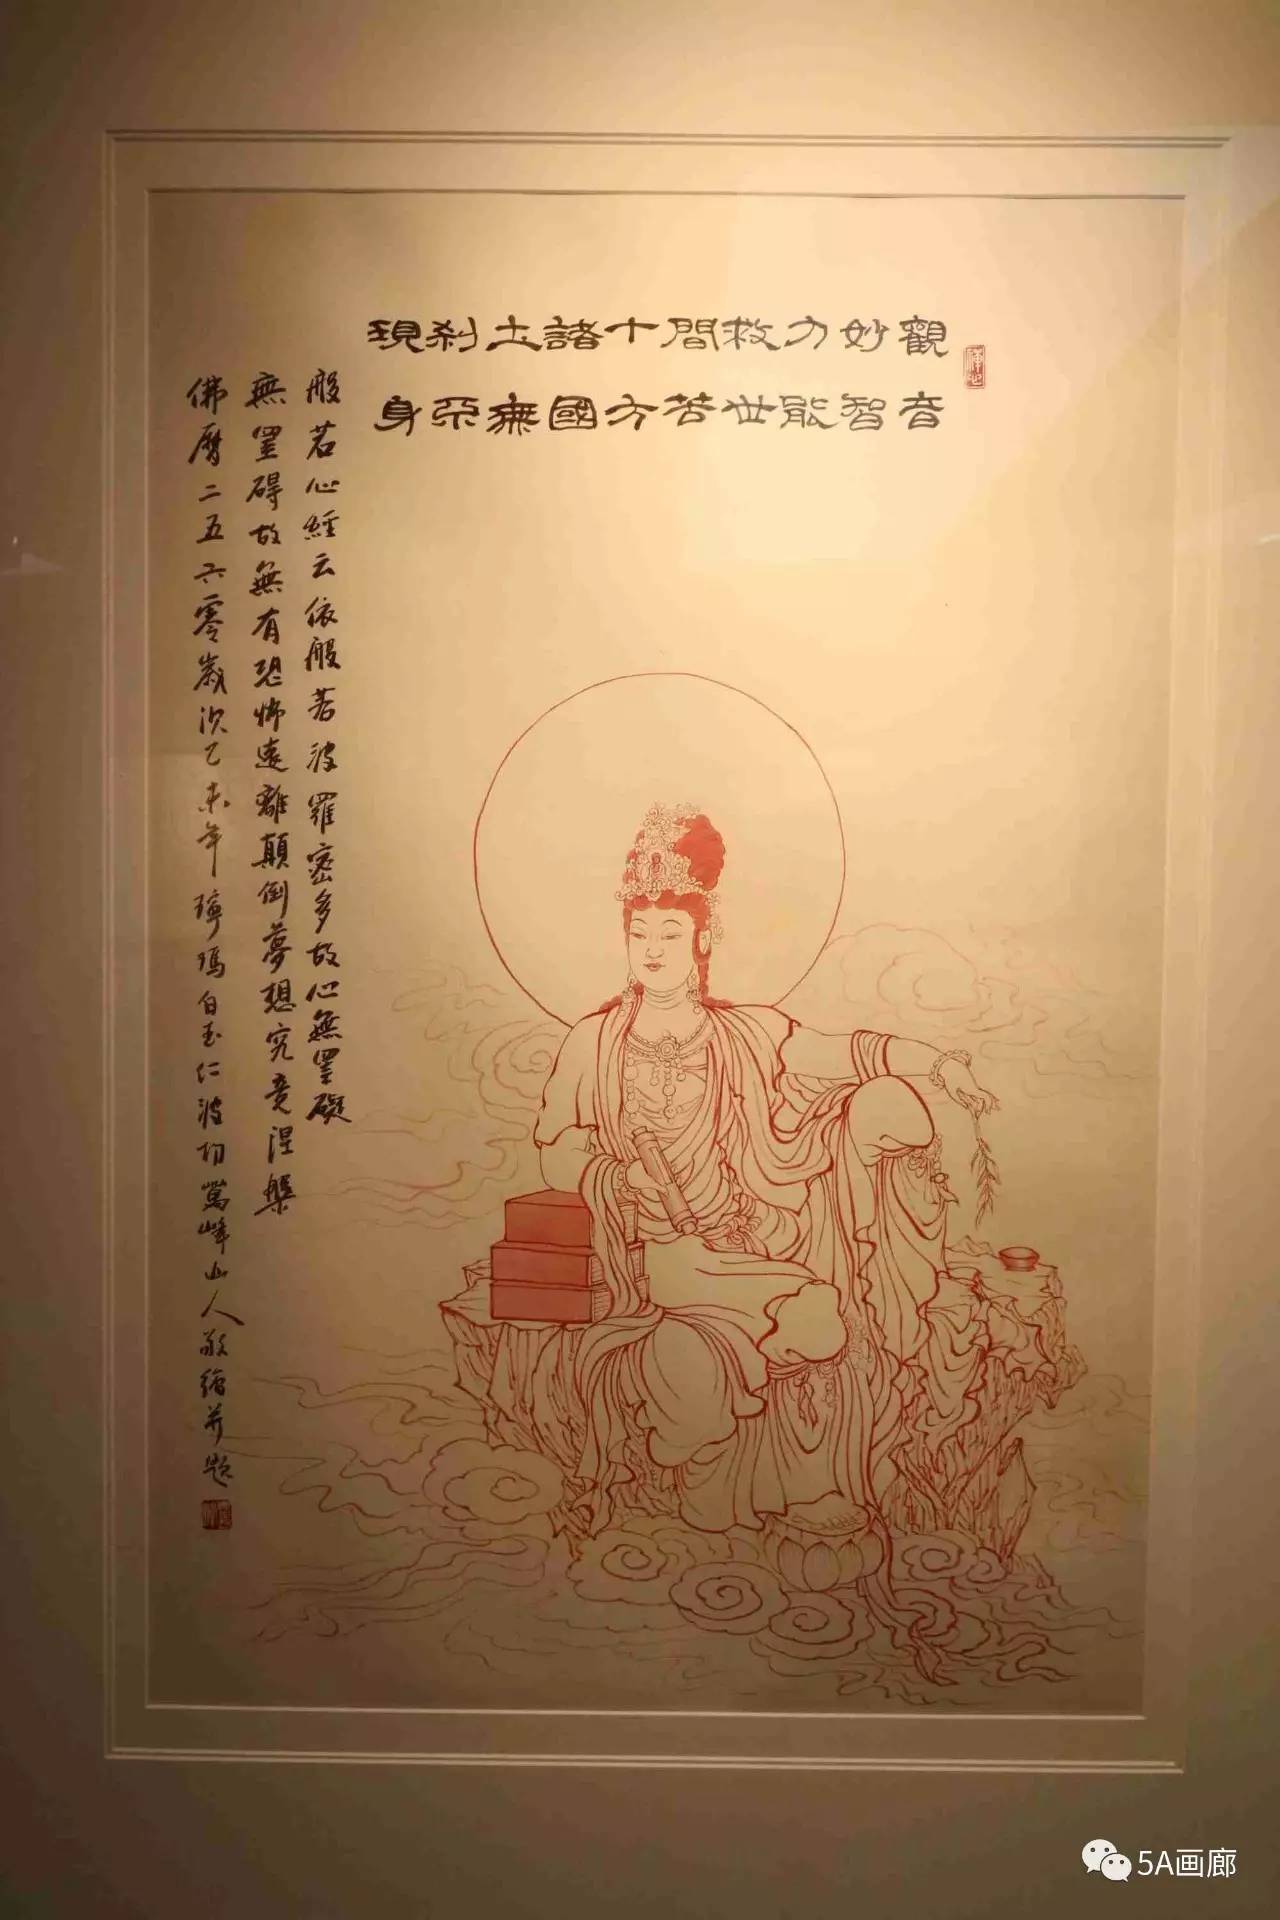 觀音
妙智
力能
救世
間苦
十方
諸國
土無
刹不
現身
般若心經云依般若波羅密多故心無罣礙
無罣碍故無有恐怖遠離顛倒夢想究竟涅槃
佛曆二五六零歲次乙未年瑪白玉仁波切峰山人敬繪并題
5A画廊